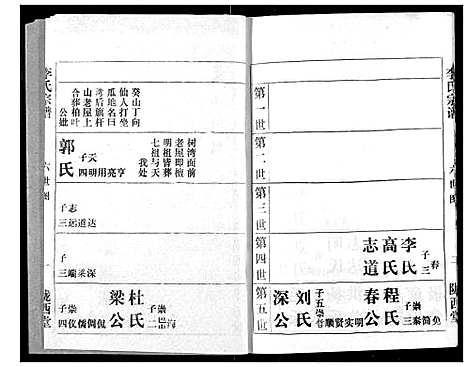 李氏宗谱
六世图
陇西堂
第一世
第二世
树湾面前
老屋即檀
明祖皆葬
七祖与天
我处
第三世
第四世
李氏
子三
春
高氏
志道
第五世
程氏
子三
崇
秦简免
春公
刘氏
子五
崇
哲顺实明
深公
李氏宗谱
六世图
一
陇西堂
癸山丁向
仙人打坐
瓜地名曰
湾后旗杆
山老屋上
合葬柏叶
公妣
郭氏
子四
天
明用亮亨
子三
志
远道达
子三
崇
端深
杜氏
子二
崇
梁公
子四
崇
仪侨倜侃